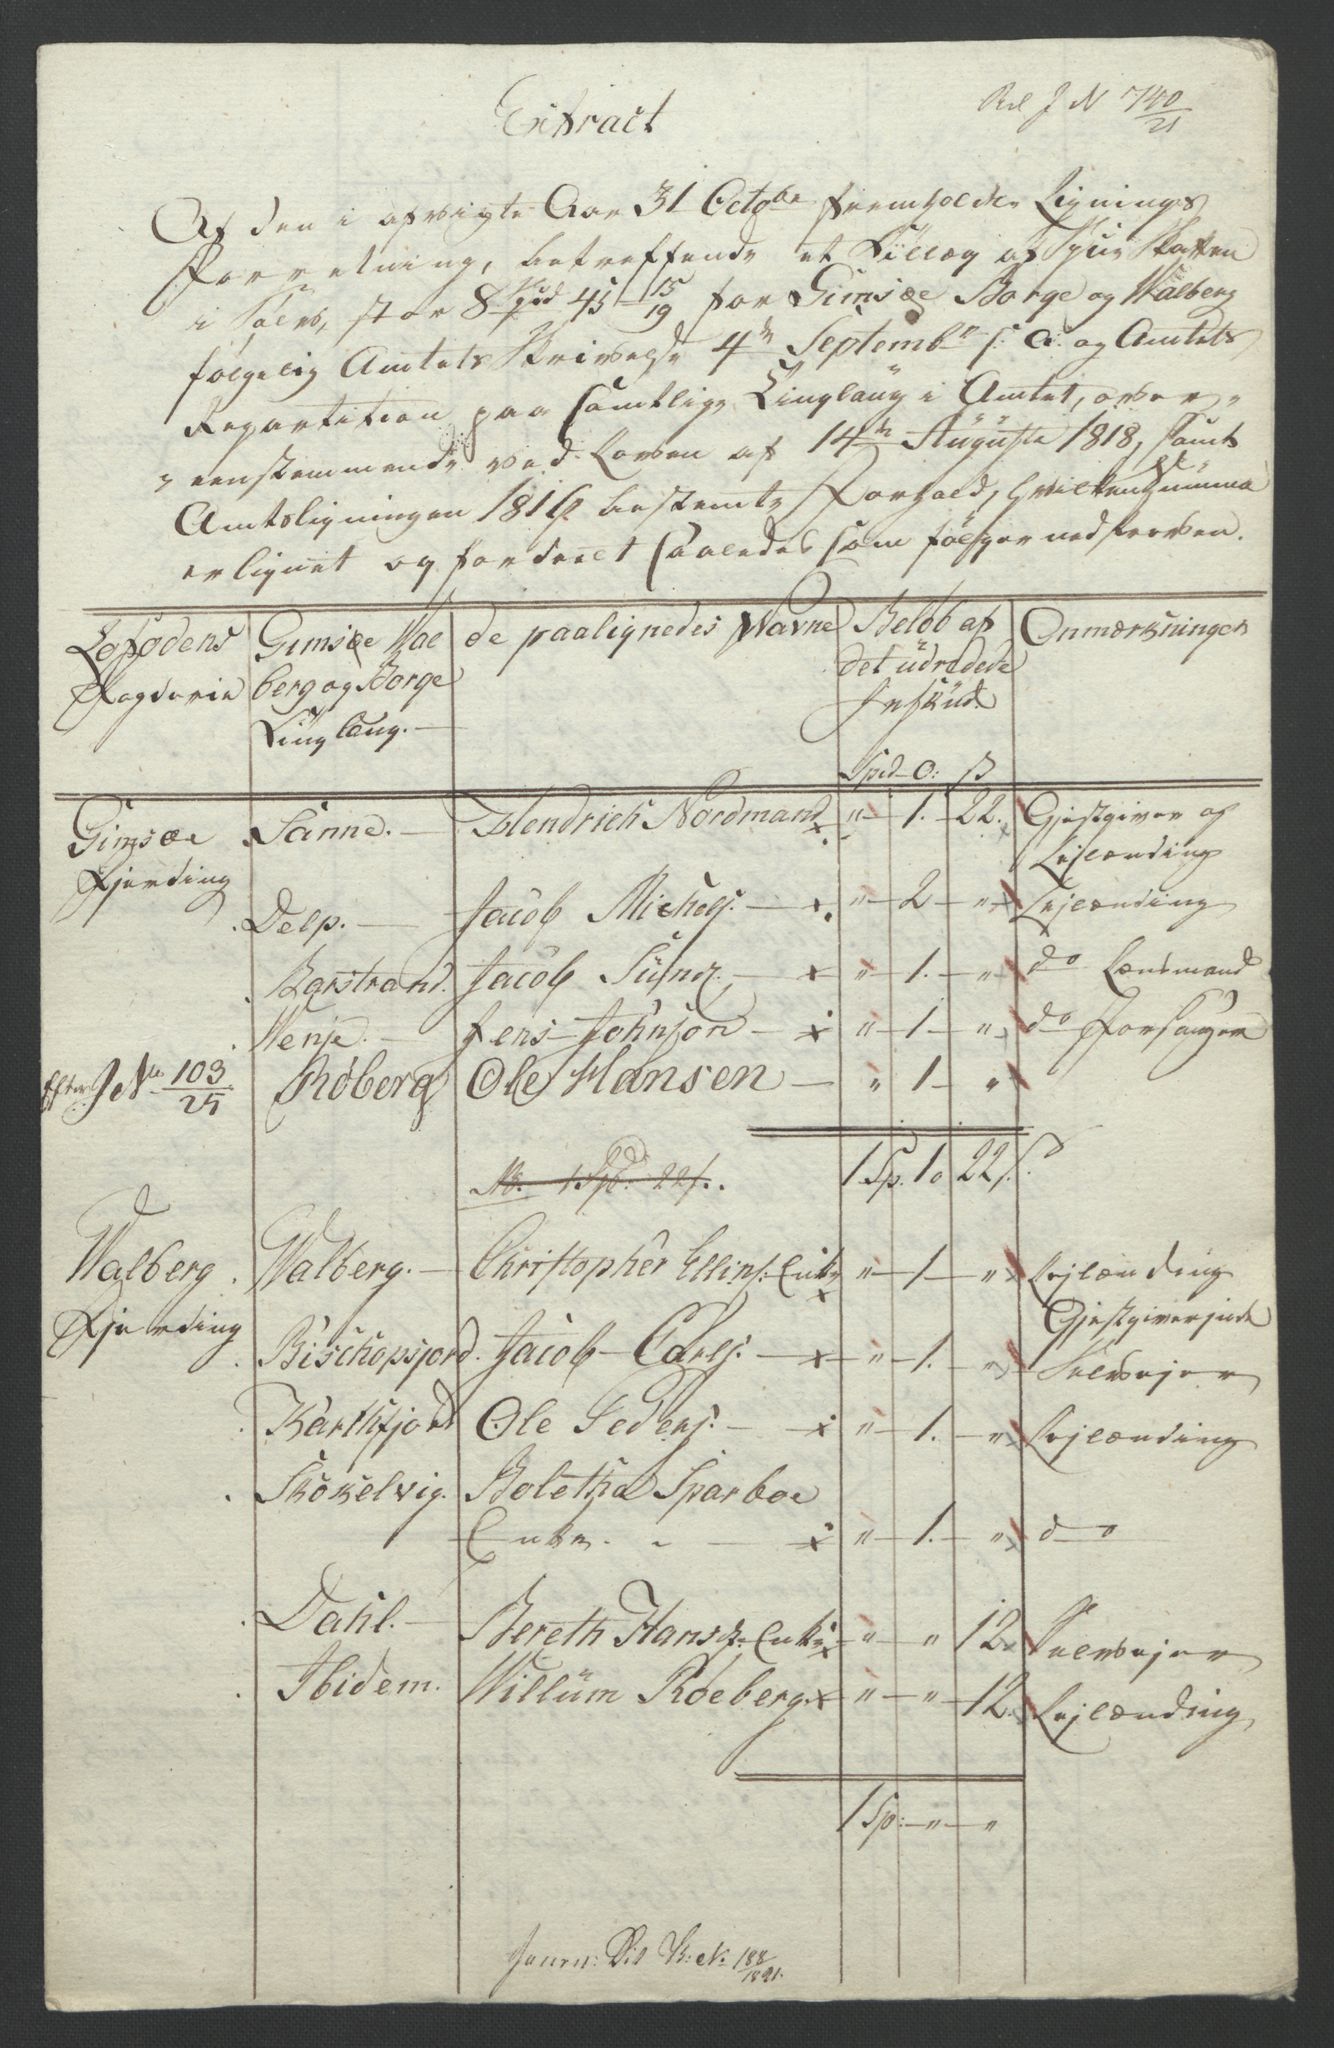 Extract
J N 740/21
Af den i afvigte Aar 31 Octobr fremholdte Lignings
Forretning, betreffende et Tillæg af Skatten
i Sølv, stor 8 Spd 45 15/19 for Gimsøe Borge og Walberg
følgelig Amtets Skrivelse 4de Septembr f: a: og Amtets
Repartition paa samtlige Tinglaug i Amtet, over-
eenstemmende ved Loven af 14de Augusti 1818, samt
Amtsligningen 1816 bestemte Forhold, hvilken Summa
er lignet og fordeelt saaledes som følger nedskreven.
Lofodens Fogderie
Gimsøe Wal
berg og Borge
Tinglaug.
de paalignedes Navne
Beløb af
det udredede
Indskud
Spd O: ß
Anmærkninger
Gimsøe Fjerding
Sanne. Hendrich Nordmand " 1. 22. Gjestgiver og
Lejlænding
Delp. Jacob Michels. " 2 " Lejlænding
Barstrand. Jacob Sund. " 1. " do Lensmand
Wenje. Jens Johnson " 1 " do Forsanger
Efter J No 103/25 Røberg Ole Hansen " 1 "
1 Spd. 22 ß.
1 Sp. 1 o 22 ß.
Walberg Fjerding
Walberg. Christopher Ellins: Enke " 1 " Lejlænding
Gjestgiver
Bischopsjord. Jacob Carls. " 1. " Selvejer
Karthfjord Ole Peders. " 1. " Lejlænding
Skokelvig. Boletha Sparboe
Enke. " 1. " do
Dahl. Bereth Hansd. Enke " " 12 Selvejer
Ibidem. Willum Røeberg. " " 12. Lejlænding
1 Sp: " "
Journ: N: 188/1821.